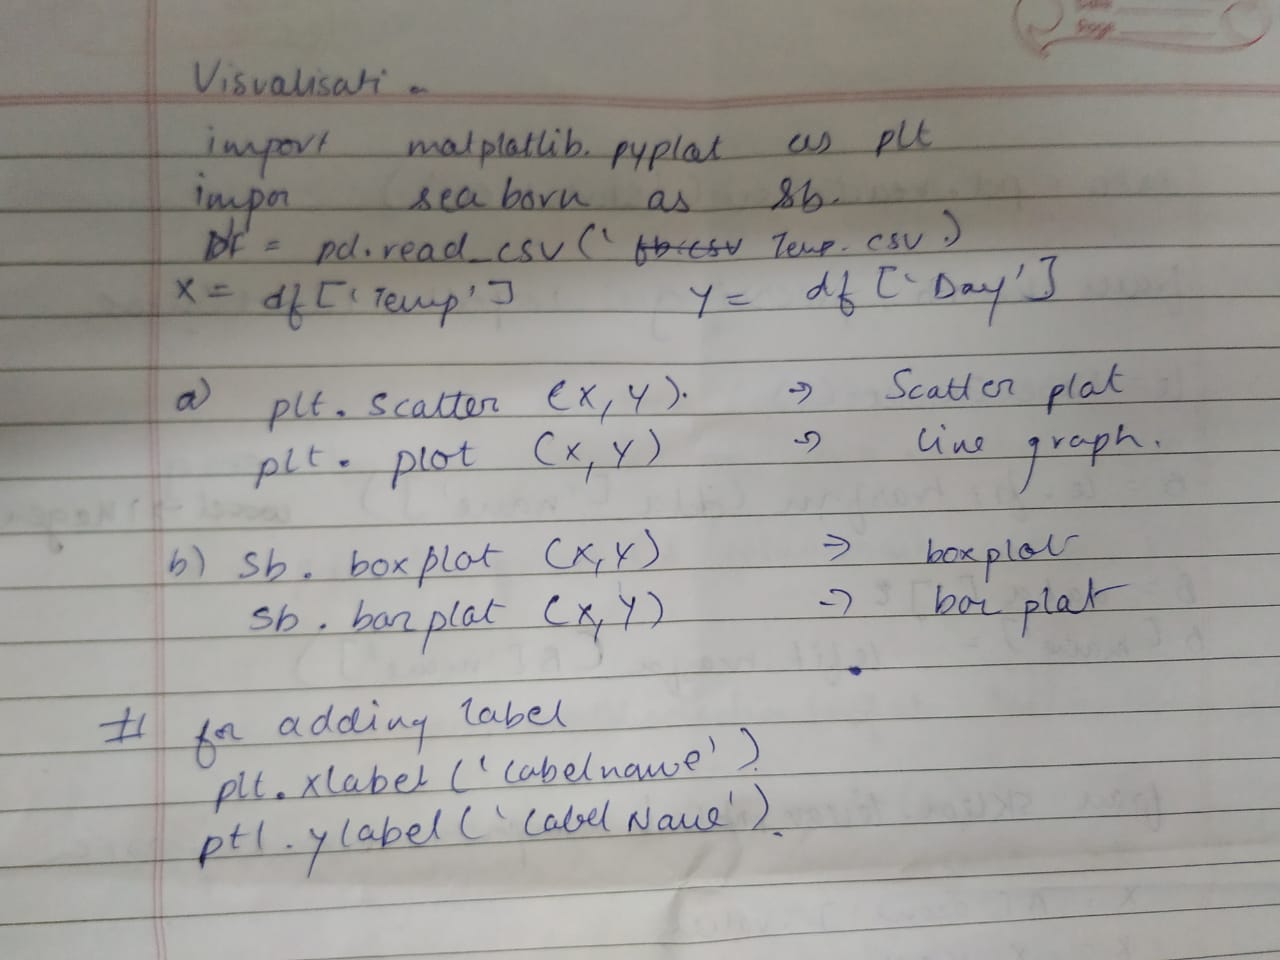 Page
Visualisati -
import matplatlib. pyplat as plt
impor seaborn as sb.
Df = pd.read_csv(' fb.csv Temp. csv.)
X = df ['Temp'] Y = df ['Day']
a) plt. scatter (x, y). → Scatter plat
plt. plot (x, y) → line graph.
b) sb. boxplot (x, y) ⇒ boxplot
sb. barplat (x, y) → bar plat
# for adding label
plt. xlabel ('labelname').
ptl. ylabel ('label Name').